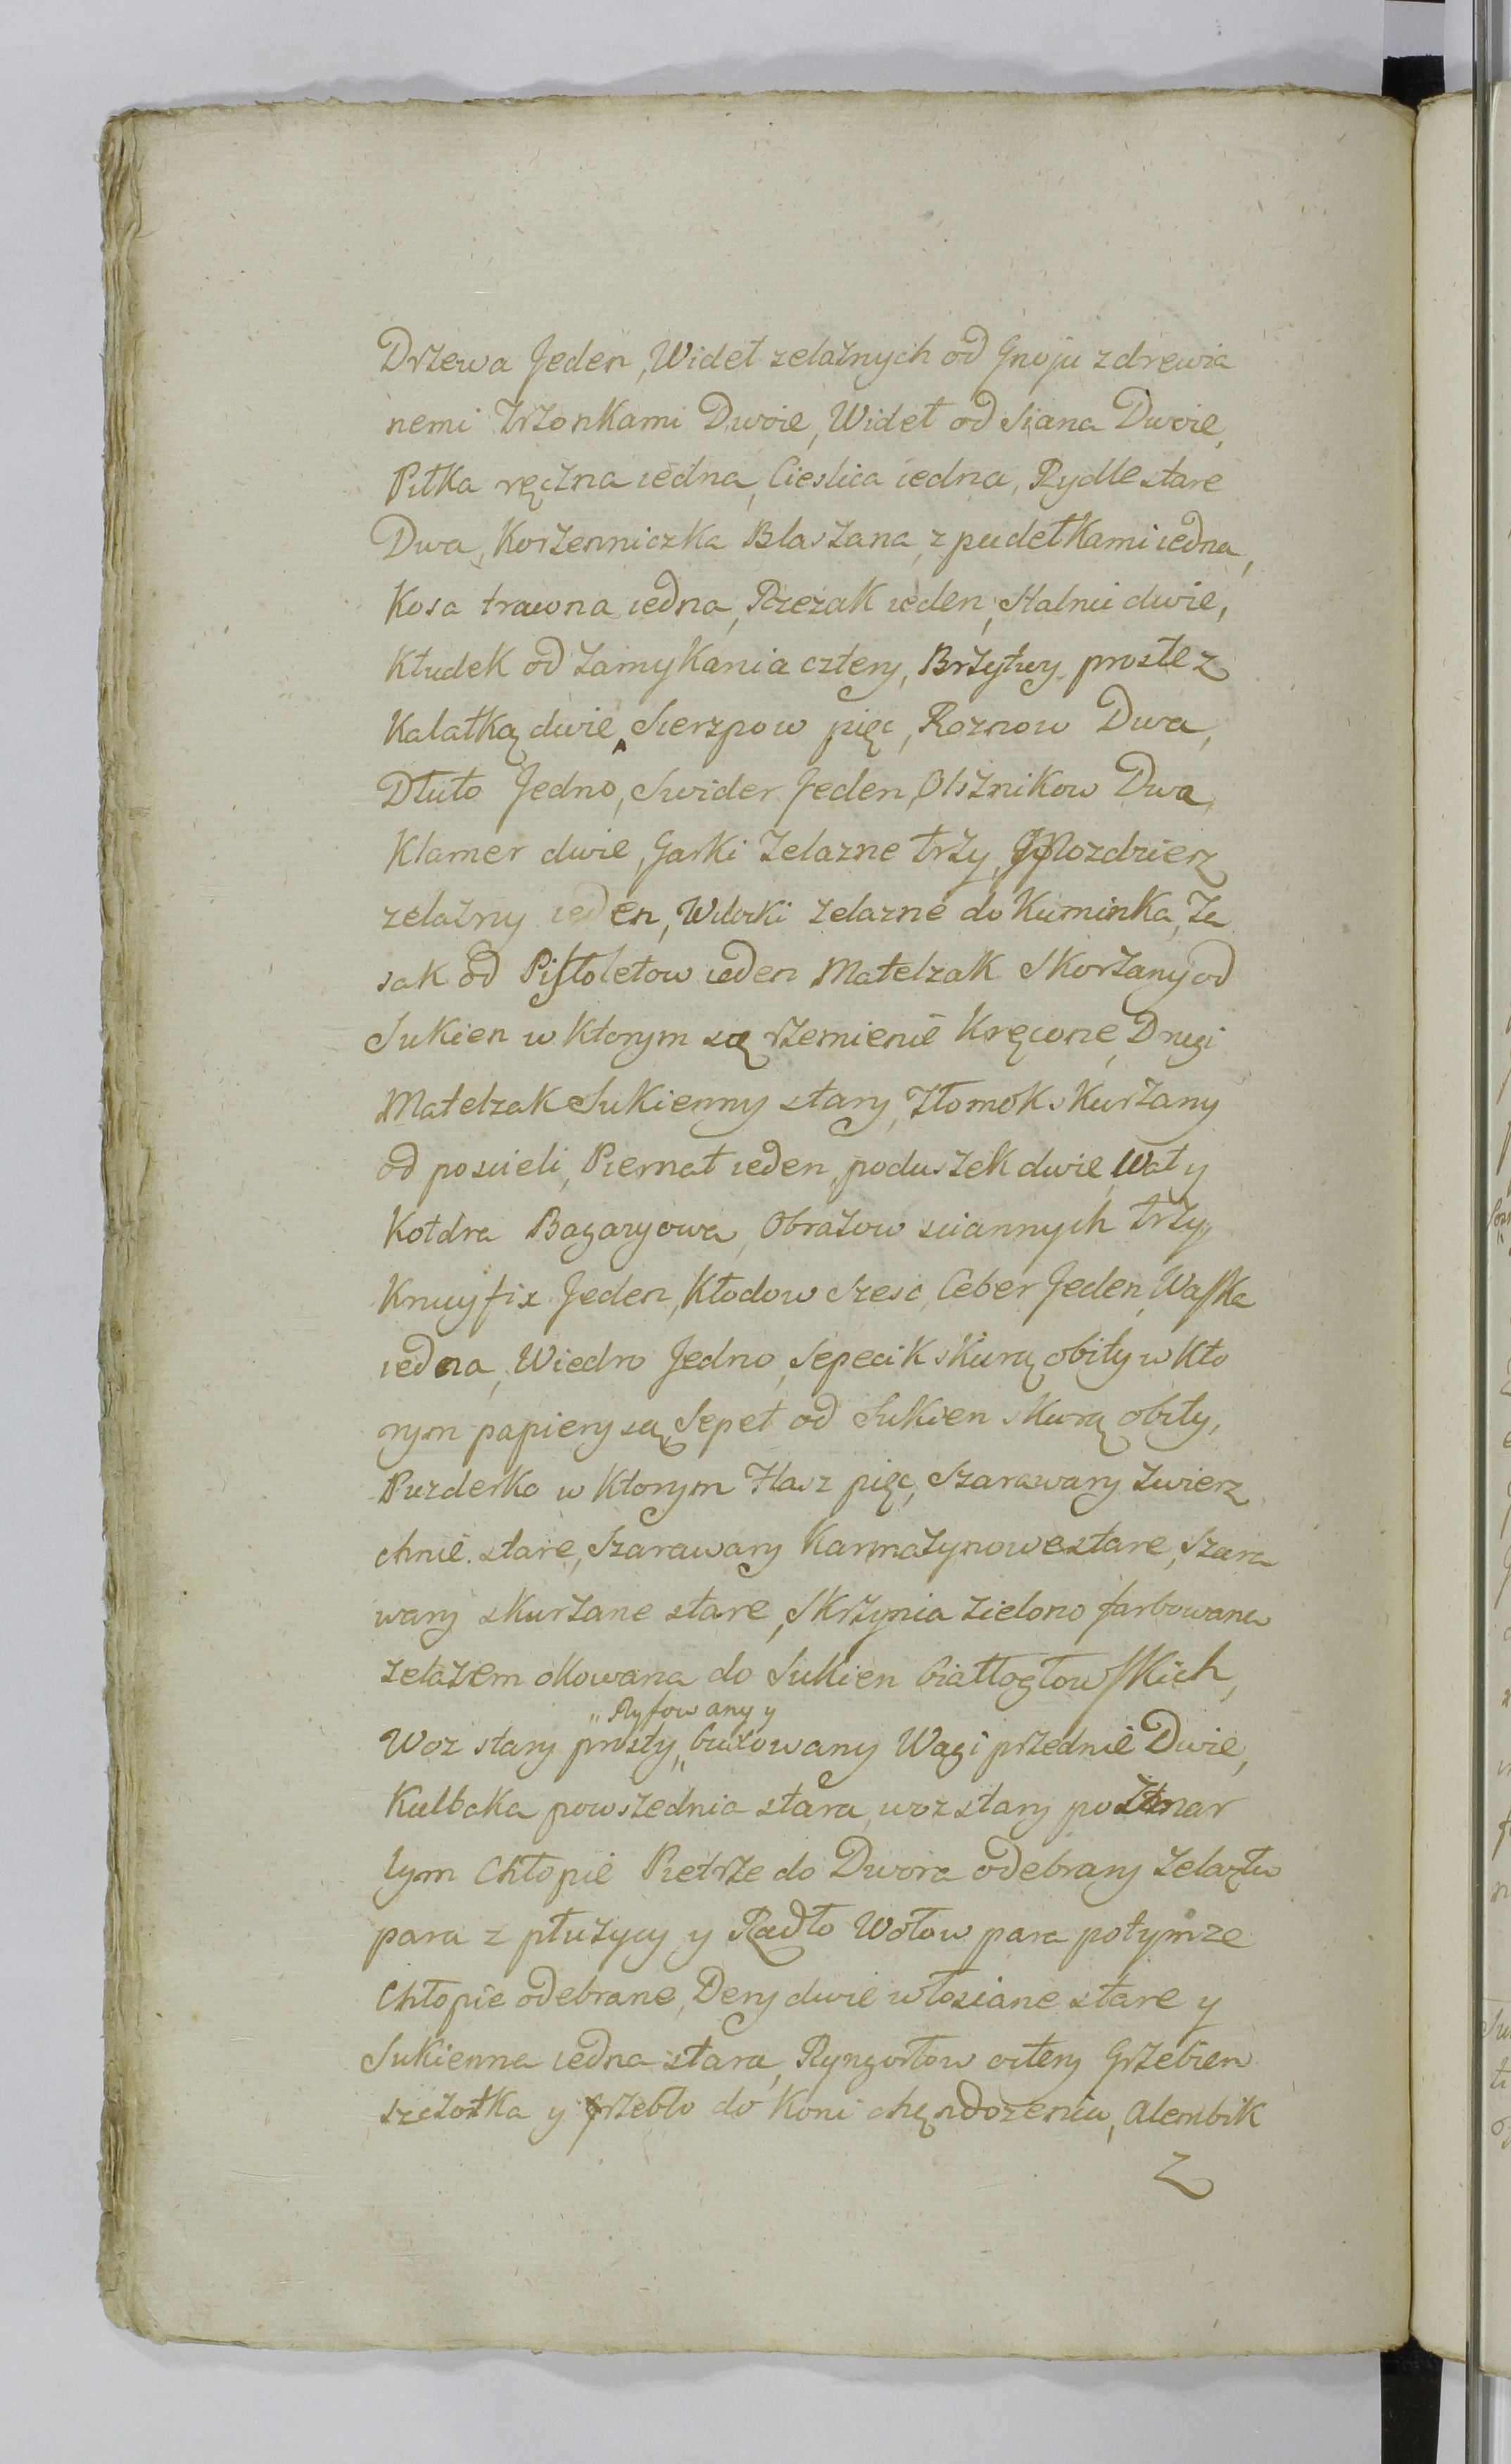 Drzewa Jeden, Wideł zelaznych od Gnoju z drewia
nemi Trzonkami Dwoie, Wideł od Siana Dwoie,
Piłka ręczna iedna, Cieslica iedna, Rydle stare
Dwa, Korzenniczka Blaszana, z pudełkami iedna,
Kosa trawna iedna, Rzezak ieden, Stalnic dwie,
Kłudek od Zamykania cztery, Brzytwy proste z
Kalatką dwie, Sierzpow pięc, Roznow Dwa,
Dłuto Jedno, Swider Jeden, Olsznikow Dwa,
Klamer dwie, Garki Zelazne trzy, Mozdzierz
zelazny ieden, Wilocki zelazne do Kuminka, Ta
sak od Pistoletow ieden Matelzak Skorzany od
Sukien w Ktorym są rzemienie Kręcone, Drugi
Matelzak Sukienny stary, Tłomok skurzany
od poscieli, Piernat ieden, poduszek dwie, Wat y
Kołdra Bagazyowa, Obrazow sciannych trzy,
Krucyfix Jeden, Kłodow szesc, Ceber Jeden, Waska
iedna, Wiedro Jedno, Sepecik skurą obity w Kto
rym papiery są, Sepet od Sukien skurą obity,
Puzderko w Ktorym Flasz pięc, Szarawary zwierz
chnie stare, Szarawary Karmazynowe stare, Szara
wary skurzane stare, Skrzynia zielono farbowana
zelazem okowana do Sukien białłogłowskich,
„ Ryfowany y
Woz stary prosty „ buxowany Wagi przednie Dwie,
Kulbaka powszednia stara, woz stary po Zmar
łym Chłopie Pietrze do Dwora odebrany Zelaztw
para z płużycy y Radło Wołow para po tymze
Chłopie odebrane, Dery dwie włosiane stare y
Sukienna iedna stara, Ryngortow cztery Grzebien
szczotka y Grzebło do Koni chęndozenia, Alembik
Z